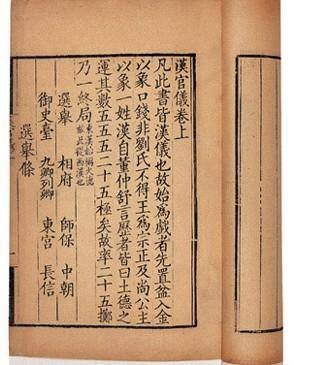 漢官儀卷上
凡此書皆漢儀也故始為戲者先置盆入金
以象口錢非劉氏不得王為宗正及尚公主
以象一姓漢自董仲舒言歷者皆曰土德之
運其數五五五二十五極矣故率二十五擲
乃一終局 東漢始稱火德
故此從西漢也
選舉 相府 師保 中朝
御史臺 九卿列卿 東宮 長信
選舉條